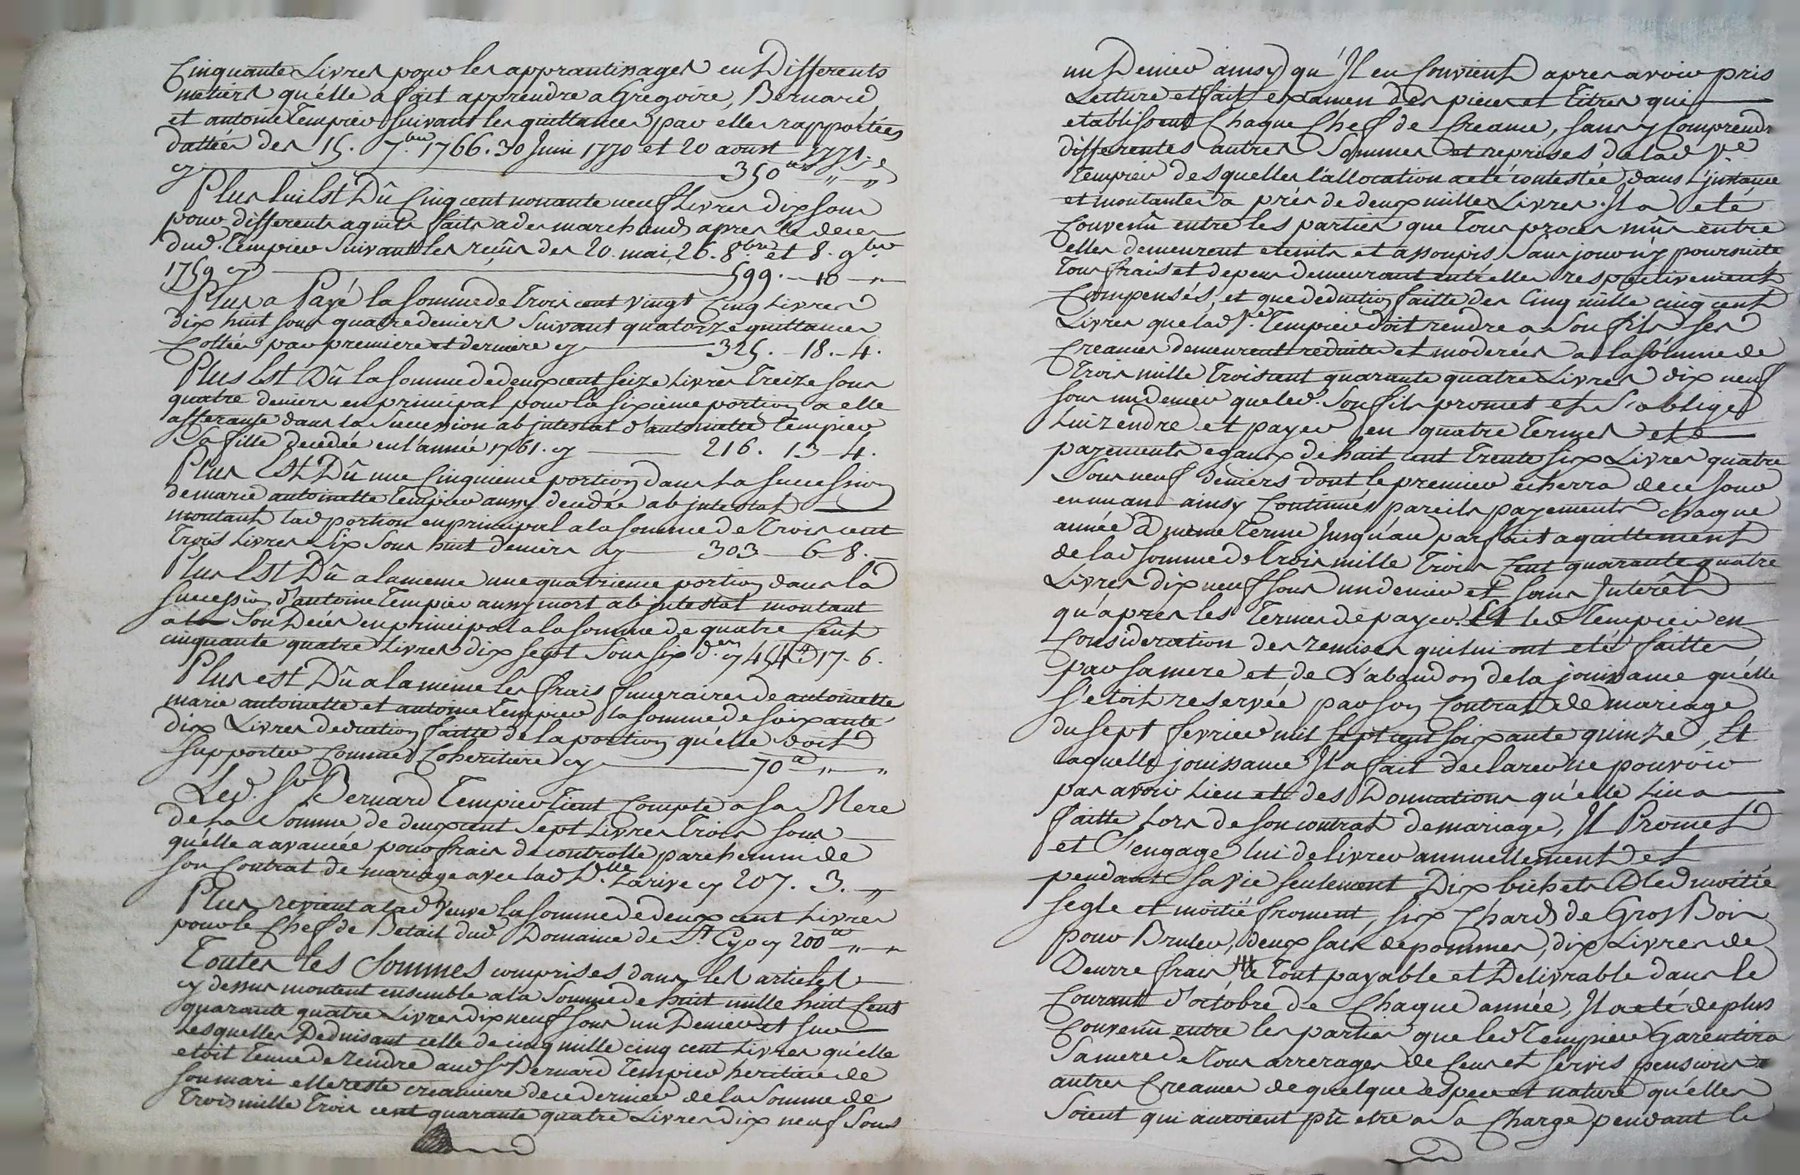 Cinquante Livres pour les apprantissages en Differents
metiers qu'elle a fait apprendre a Gregoire, Bernard,
et antoine Tempier suivant les quittances par elle rapportées
dattées des 15. 7bre 1766. 30 Juin 1770 et 20 aoust 1771.
cy 350 " "
Plus lui Est Dû Cinq cent nonante neuf Livres dix sous
pour differents aquits faits a des marchands apres le deces
dud. Tempier suivant les reçus des 20. mai, 26. 8bre et 8. 9bre
1759 cy 599. 10 "
Plus a Payé la somme de Trois cent vingt Cinq Livres
dix huit sous quatre deniers suivant quatorze quittances
Cottées par premiere et derniere cy 325. 18. 4.
Plus Est Dû la somme de deux cent seize Livres Treize sous
quatre deniers en principal pour la sixieme portion a elle
afferante dans la Succession ab intestat d'antoinette Tempier
sa fille decedée en l'année 1761. cy 216. 13 4.
Plus Est Dû une Cinquieme portion dans la succession
de marie antoinette Tempier aussy decedée ab intestat
montant lad portion en principal a la somme de Trois cent
Trois Livres six sous huit deniers cy 303 6 8.
Plus Est Dû a la meme une quatrieme portion dans la
succession d'antoine Tempier aussy mort ab intestat montant
son Deces en principal a la somme de quatre Cent
cinquante quatre Livres dix sept sous six d.ers cy 454 17. 6.
Plus est Dû a la même les frais funeraires de antoinette
marie antoinette et antoine Tempier la somme de soixante
dix Livres deduction faitte de la portion qu'elle doit
supporter Comme Coheritiere cy 70 " "
Led. Sr Bernard Tempier Tient Compte a sa Mere
de la Somme de deux cent Sept Livres Trois sous
qu'elle a avancée pour frais de controlle, parchemin de
son Contrat de mariage avec lad D.lle Larive cy 207. 3. "
Plus revient a lad veuve la somme de deux cent Livres
pour le Chef de Betail dud Domaine de St Cyp cy 200 " "
Toutes les sommes comprises dans les articles
cy dessus montent ensemble a la Somme de huit mille huit Cent
quarante quatre Livres dix neuf sous un Denier et sur
Lesquelles Deduisant celle de cinq mille cinq cent Livres qu'elle
etoit Tenue de Rendre aud Sr Bernard Tempier heritier de
son mari elle reste creanciere de ce dernier de la Somme de
Trois mille Trois cent quarante quatre Livres dix neuf Sous
un Denier ainsy qu'Il en Convient apres avoir pris
Lecture et fait examen des pieces et Titres qui
etablissent Chaque Chef de Creance, sans y Comprendre
differentes autres Sommes et reprises de lad Ve
Tempier desquelles l'allocation a eté contestée dans L'instance
et montantes a prés de deux milles Livres. Il a eté
Convenû entre les parties que Tous proces mûs entre
elles demeurent eteints et assoupis, Sans pouvoir y poursuite
Tous frais et depens demeurant entr'elles respectivement
Compensés, et que deduction faitte des Cinq mille cinq cent
Livres que lad Ve Tempier doit rendre a Son fils ses
Creances demeurent reduites et moderées a la somme de
Trois mille Trois cent quarante quatre Livres dix neuf
sous un denier que led. Son fils promet et s'oblige
Lui rendre et payer en quatre Termes et
payements egaux de huit cent Trente six Livres quatre
Sous neuf deniers dont le premier echerra de ce jour
en un an ainsy Continués pareils payements chaque
année a meme terme jusqu'au parfait aquittement
de lad Somme de Trois mille Trois Cent quarante quatre
Livres dix neuf sous un denier et sans Interêt
qu'apres les Termes de payer. Et led Tempier en
Consideration des remises qui lui ont eté faittes
par sa mere et de l'abandon de la jouissance qu'elle
s'etoit reservée par son Contrat de mariage
du sept fevrier mil sept cent soixante quinze, Et
laquelle jouissance Il a fait declarer ne pouvoir
pas avoir Lieu et des Donnations qu'elle Lui a
faitte Lors de son contrat de mariage, Il Promet
et S'engage lui delivrer annuellement et
pendant sa vie seulement Dix bichets Bled moitié
segle et moitié froment, six Chards de Gros Bois
pour Bruler, deux sacs de pommes, dix Livres de
Beurre frais le Tout payable et Delivrable dans le
Courant d'octobre de Chaque année, Il a eté de plus
Convenû entre les parties que led Tempier Garentira
Sa mere de Tous arrerages de Cens et servis pensions
autres Creances de quelque espece et nature qu'elles
Soient qui auroient pû etre a sa Charge pendant le